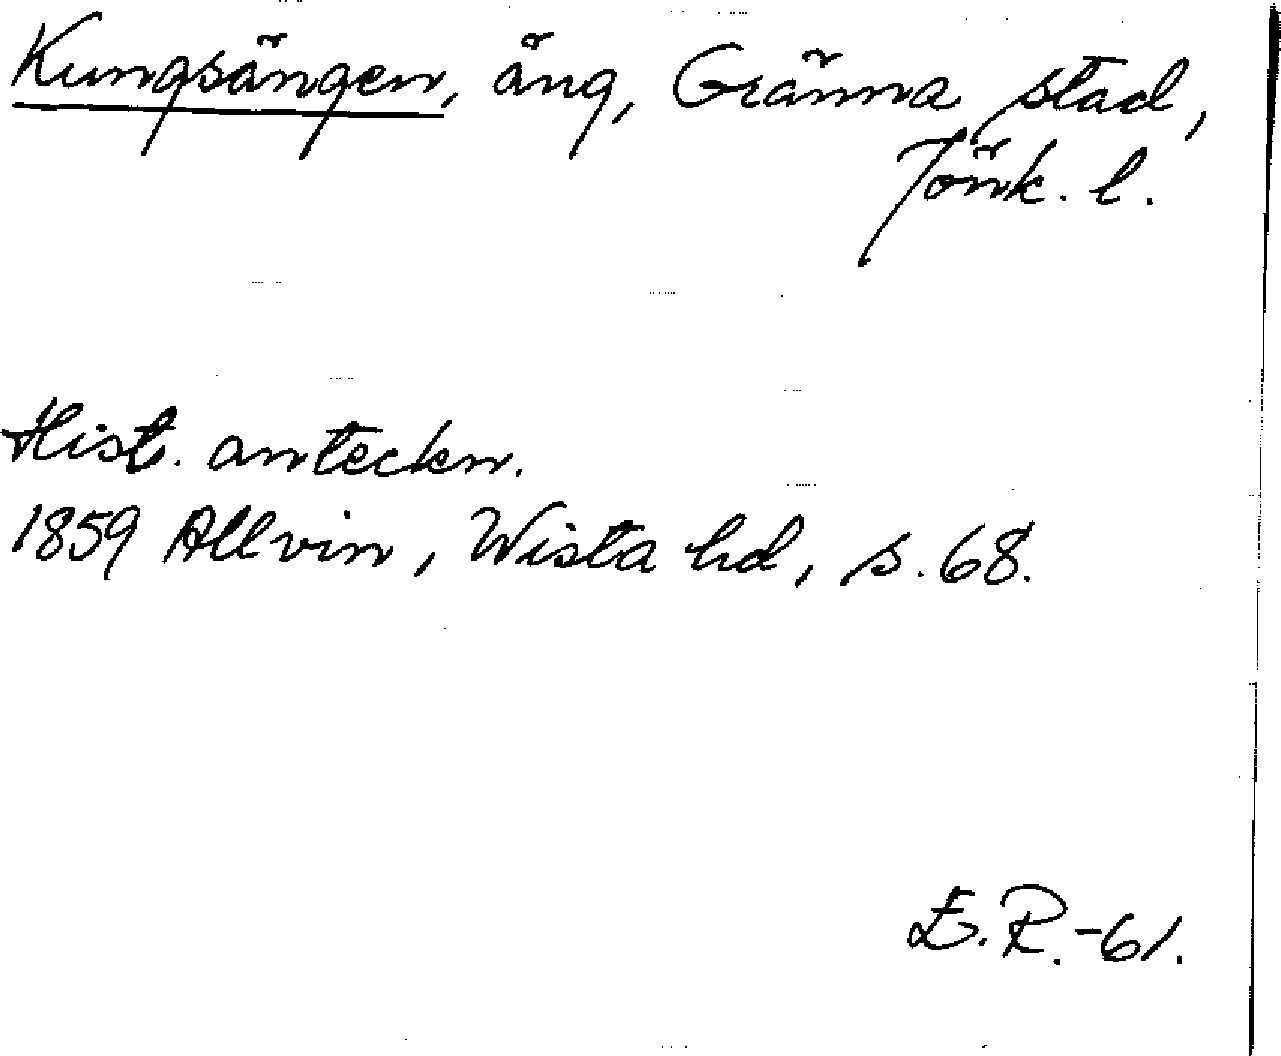 Kungsängen, äng, Gränna stad,
Jönk. l.
Hist. anteckn.
1859 Allvin, Wista hd, s. 68.
E. R. -61.